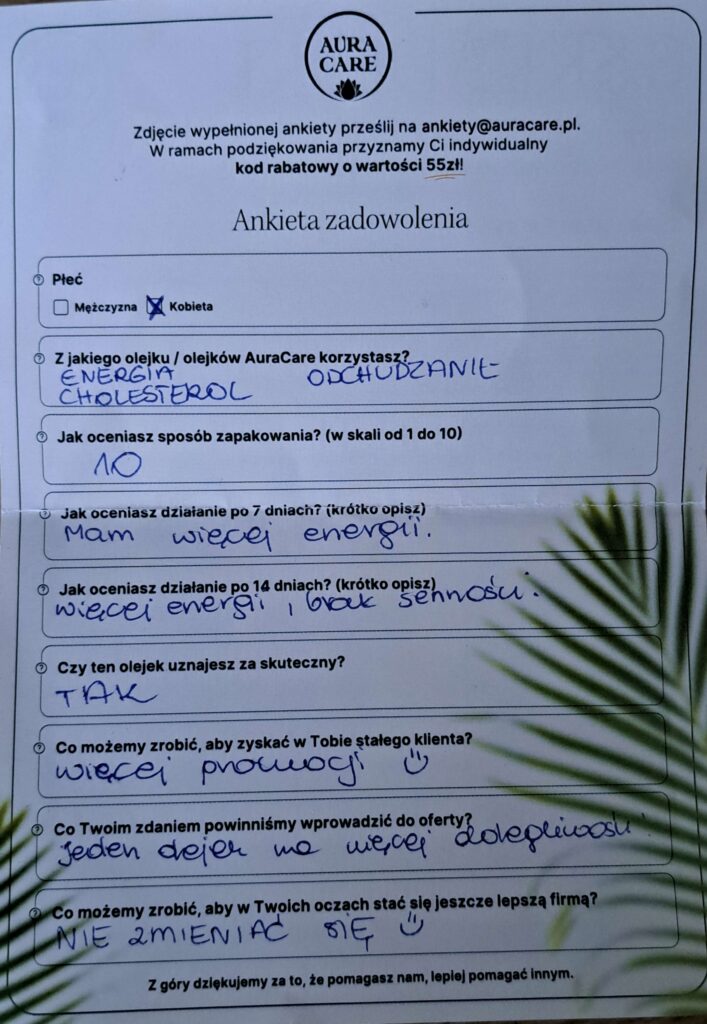 AURA
CARE
Zdjęcie wypełnionej ankiety prześlij na ankiety@auracare.pl.
W ramach podziękowania przyznamy Ci indywidualny
kod rabatowy o wartości 55zł!
Ankieta zadowolenia
Płeć
Mężczyzna Kobieta
Z jakiego olejku / olejków AuraCare korzystasz?
ENERGIA ODCHUDZANIE
CHOLESTEROL
Jak oceniasz sposób zapakowania? (w skali od 1 do 10)
10
Jak oceniasz działanie po 7 dniach? (krótko opisz)
Mam więcej energii.
Jak oceniasz działanie po 14 dniach? (krótko opisz)
więcej energii, brak senności.
Czy ten olejek uznajesz za skuteczny?
TAK
Co możemy zrobić, aby zyskać w Tobie stałego klienta?
więcej promocji
Co Twoim zdaniem powinniśmy wprowadzić do oferty?
jeden olejek na więcej dolegliwości.
Co możemy zrobić, aby w Twoich oczach stać się jeszcze lepszą firmą?
NIE ZMIENIAĆ SIĘ
Z góry dziękujemy za to, że pomagasz nam, lepiej pomagać innym.